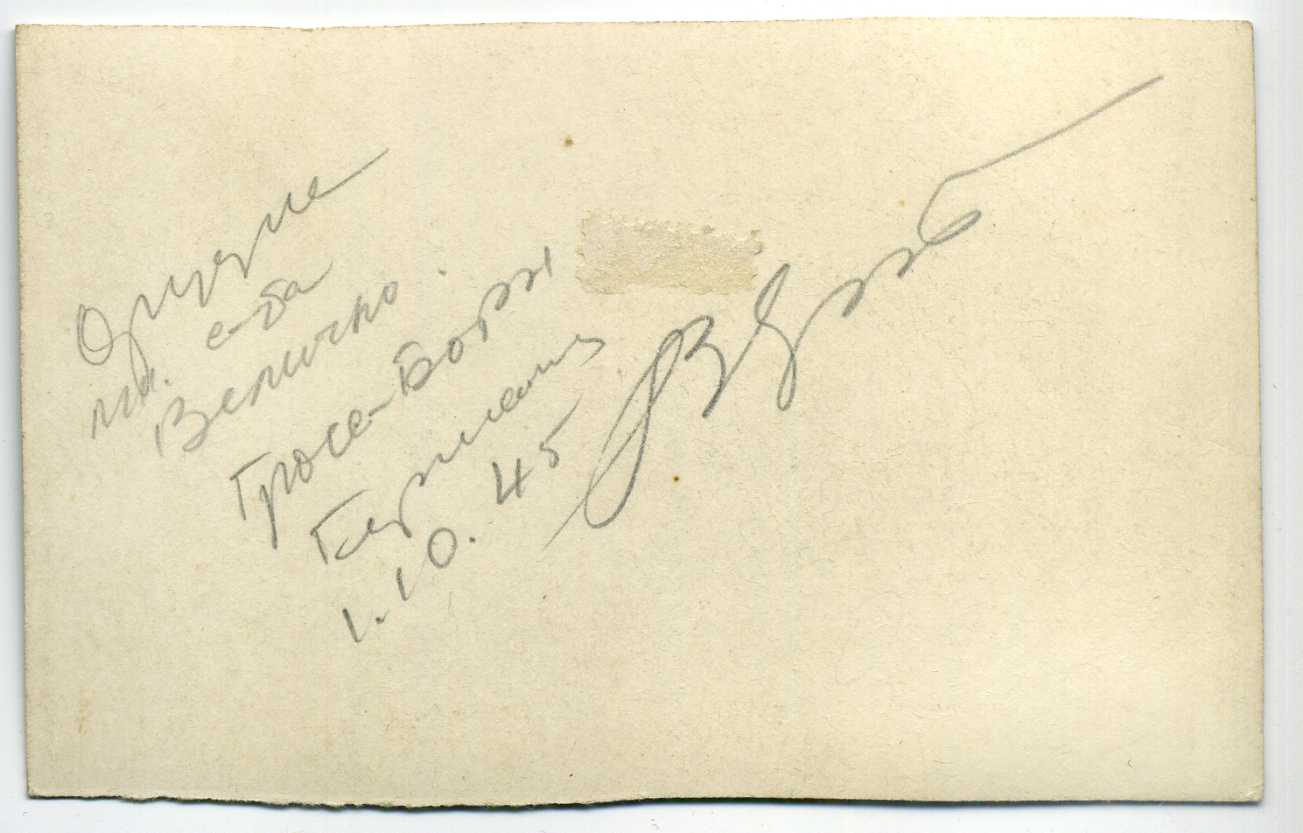 Орудие
мл. с-та
Величко.
Гросс-Борн
Германия
1.10.45